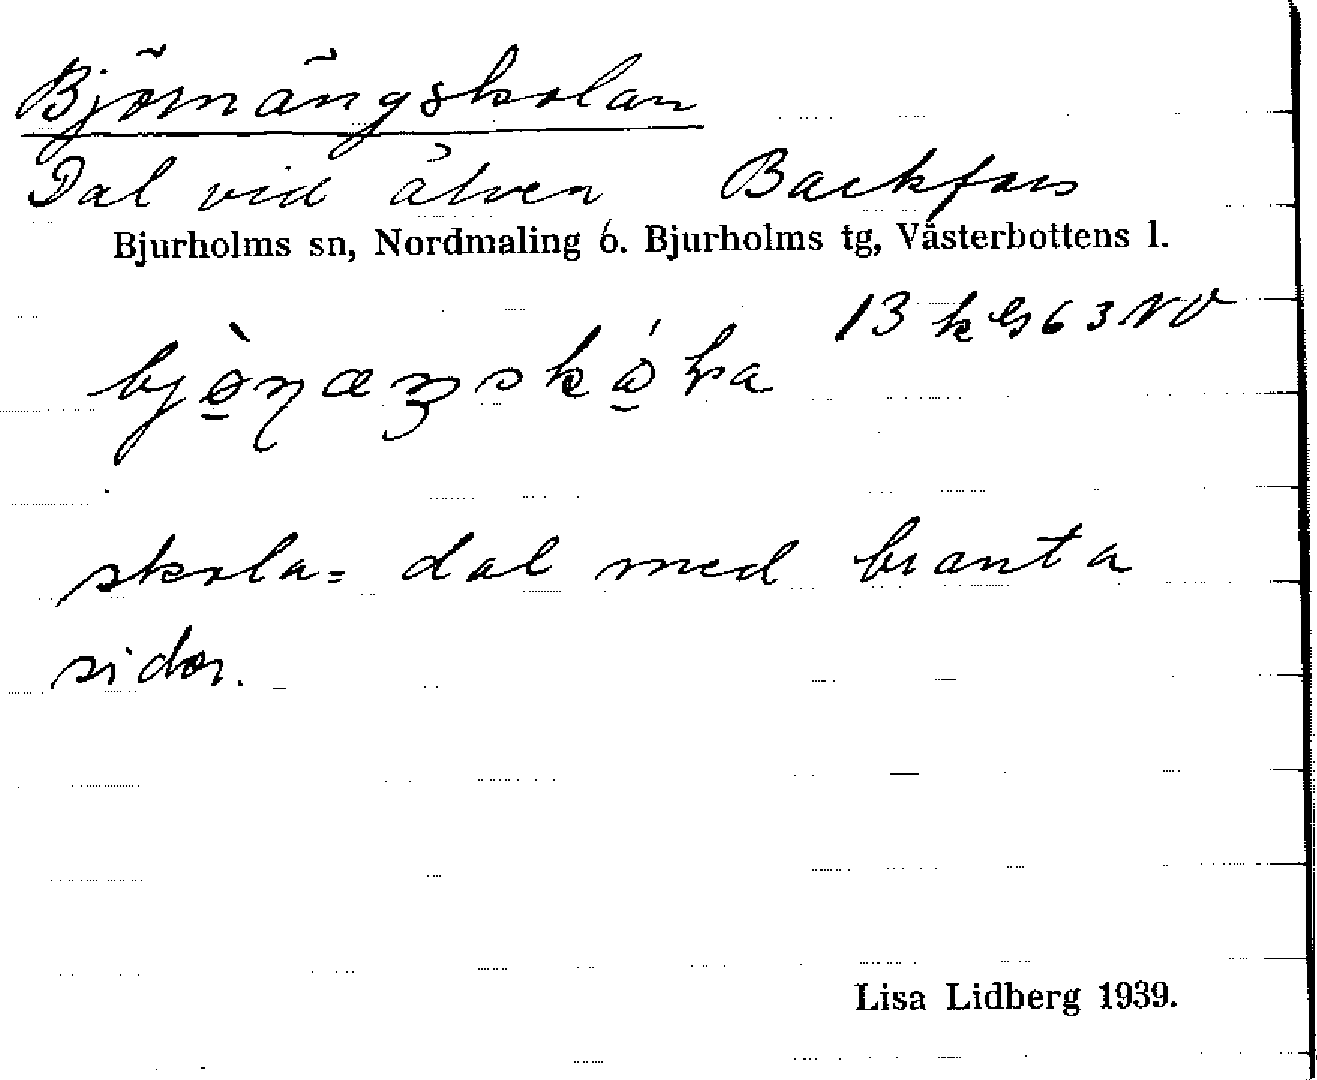 Björnängskolan
Dal vid älven Backfors
Bjurholms sn, Nordmaling o. Bjurholms tg, Västerbottens l.
13 k G 63 NV
skola = dal med branta
sidor.
Lisa Lidberg 1939.